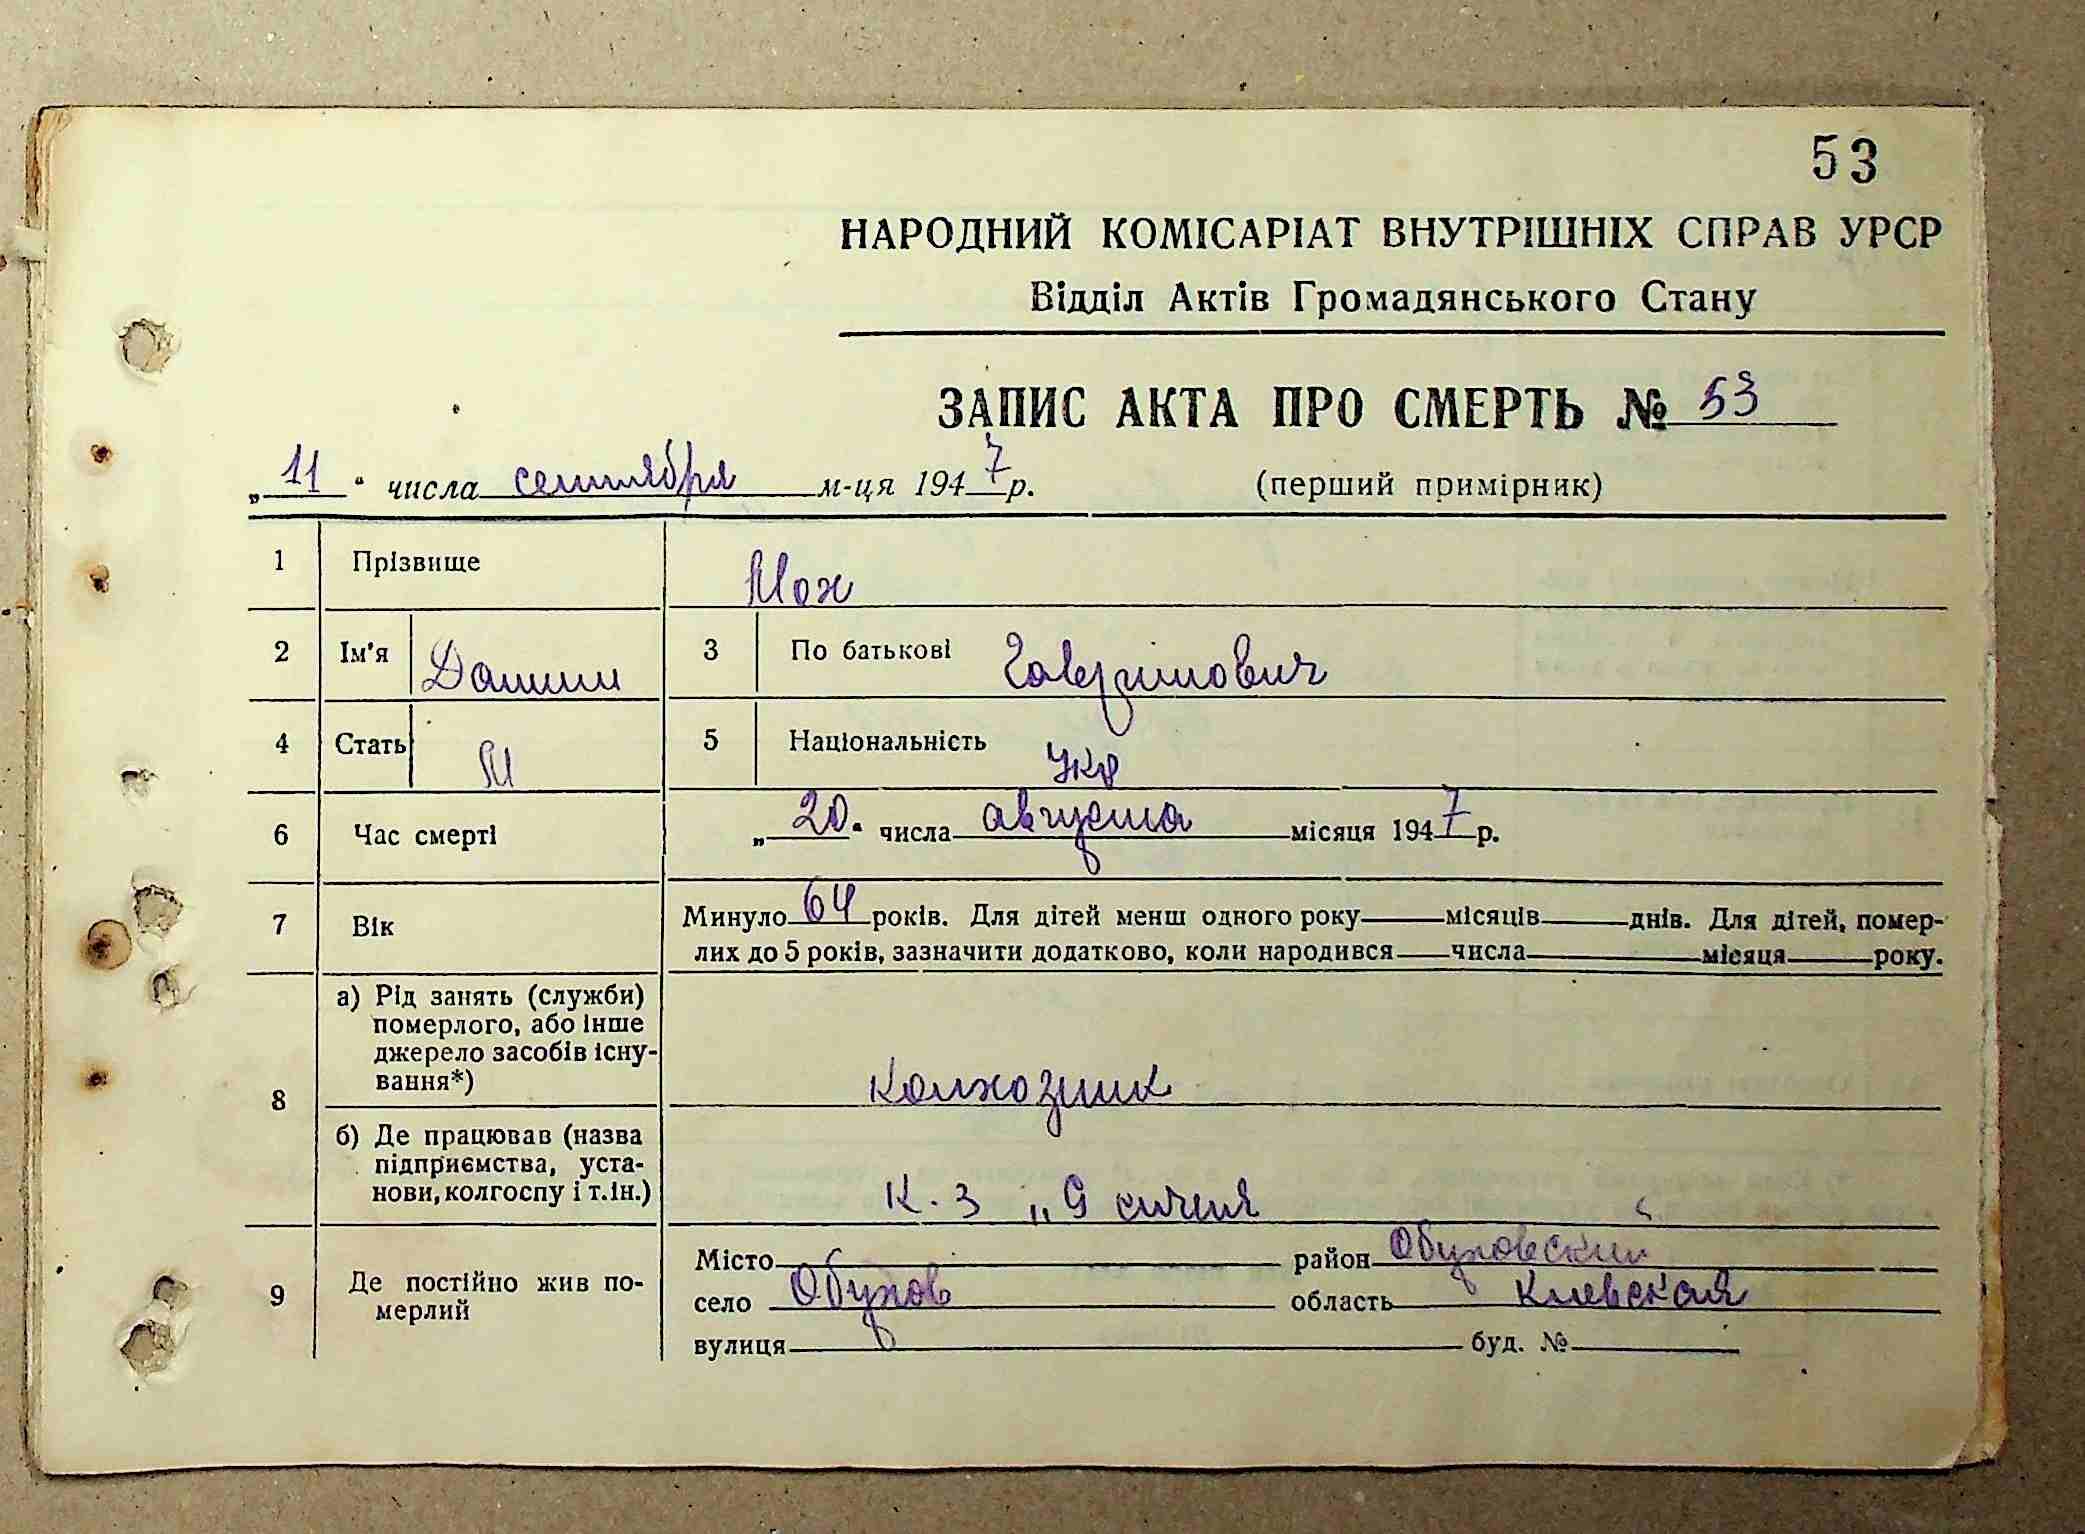 53
НАРОДНИЙ КОМІСАРІАТ ВНУТРІШНІХ СПРАВ УРСР
Відділ Актів Громадянського Стану
ЗАПИС АКТА ПРО СМЕРТЬ № 53
„11“ числа сентября м-ця 1947 р. (перший примірник)
1 Прізвище Мох
2 Ім'я Данило 3 По батькові Гаврилович
4 Стать М 5 Національність Укр
6 Час смерті „20“ числа августа місяця 1947 р.
7 Вік Минуло 64 років. Для дітей менш одного року місяців днів. Для дітей, помер-
лих до 5 років, зазначити додатково, коли народився числа місяця року.
8 а) Рід занять (служби)
померлого, або інше
джерело засобів існу-
вання*) Колхозник
б) Де працював (назва
підприємства, уста-
нови, колгоспу і т.ін.) К-з „9 січня“
9 Де постійно жив по-
мерлий
Місто район Обуховский
село Обухов область Киевская
вулиця буд. №